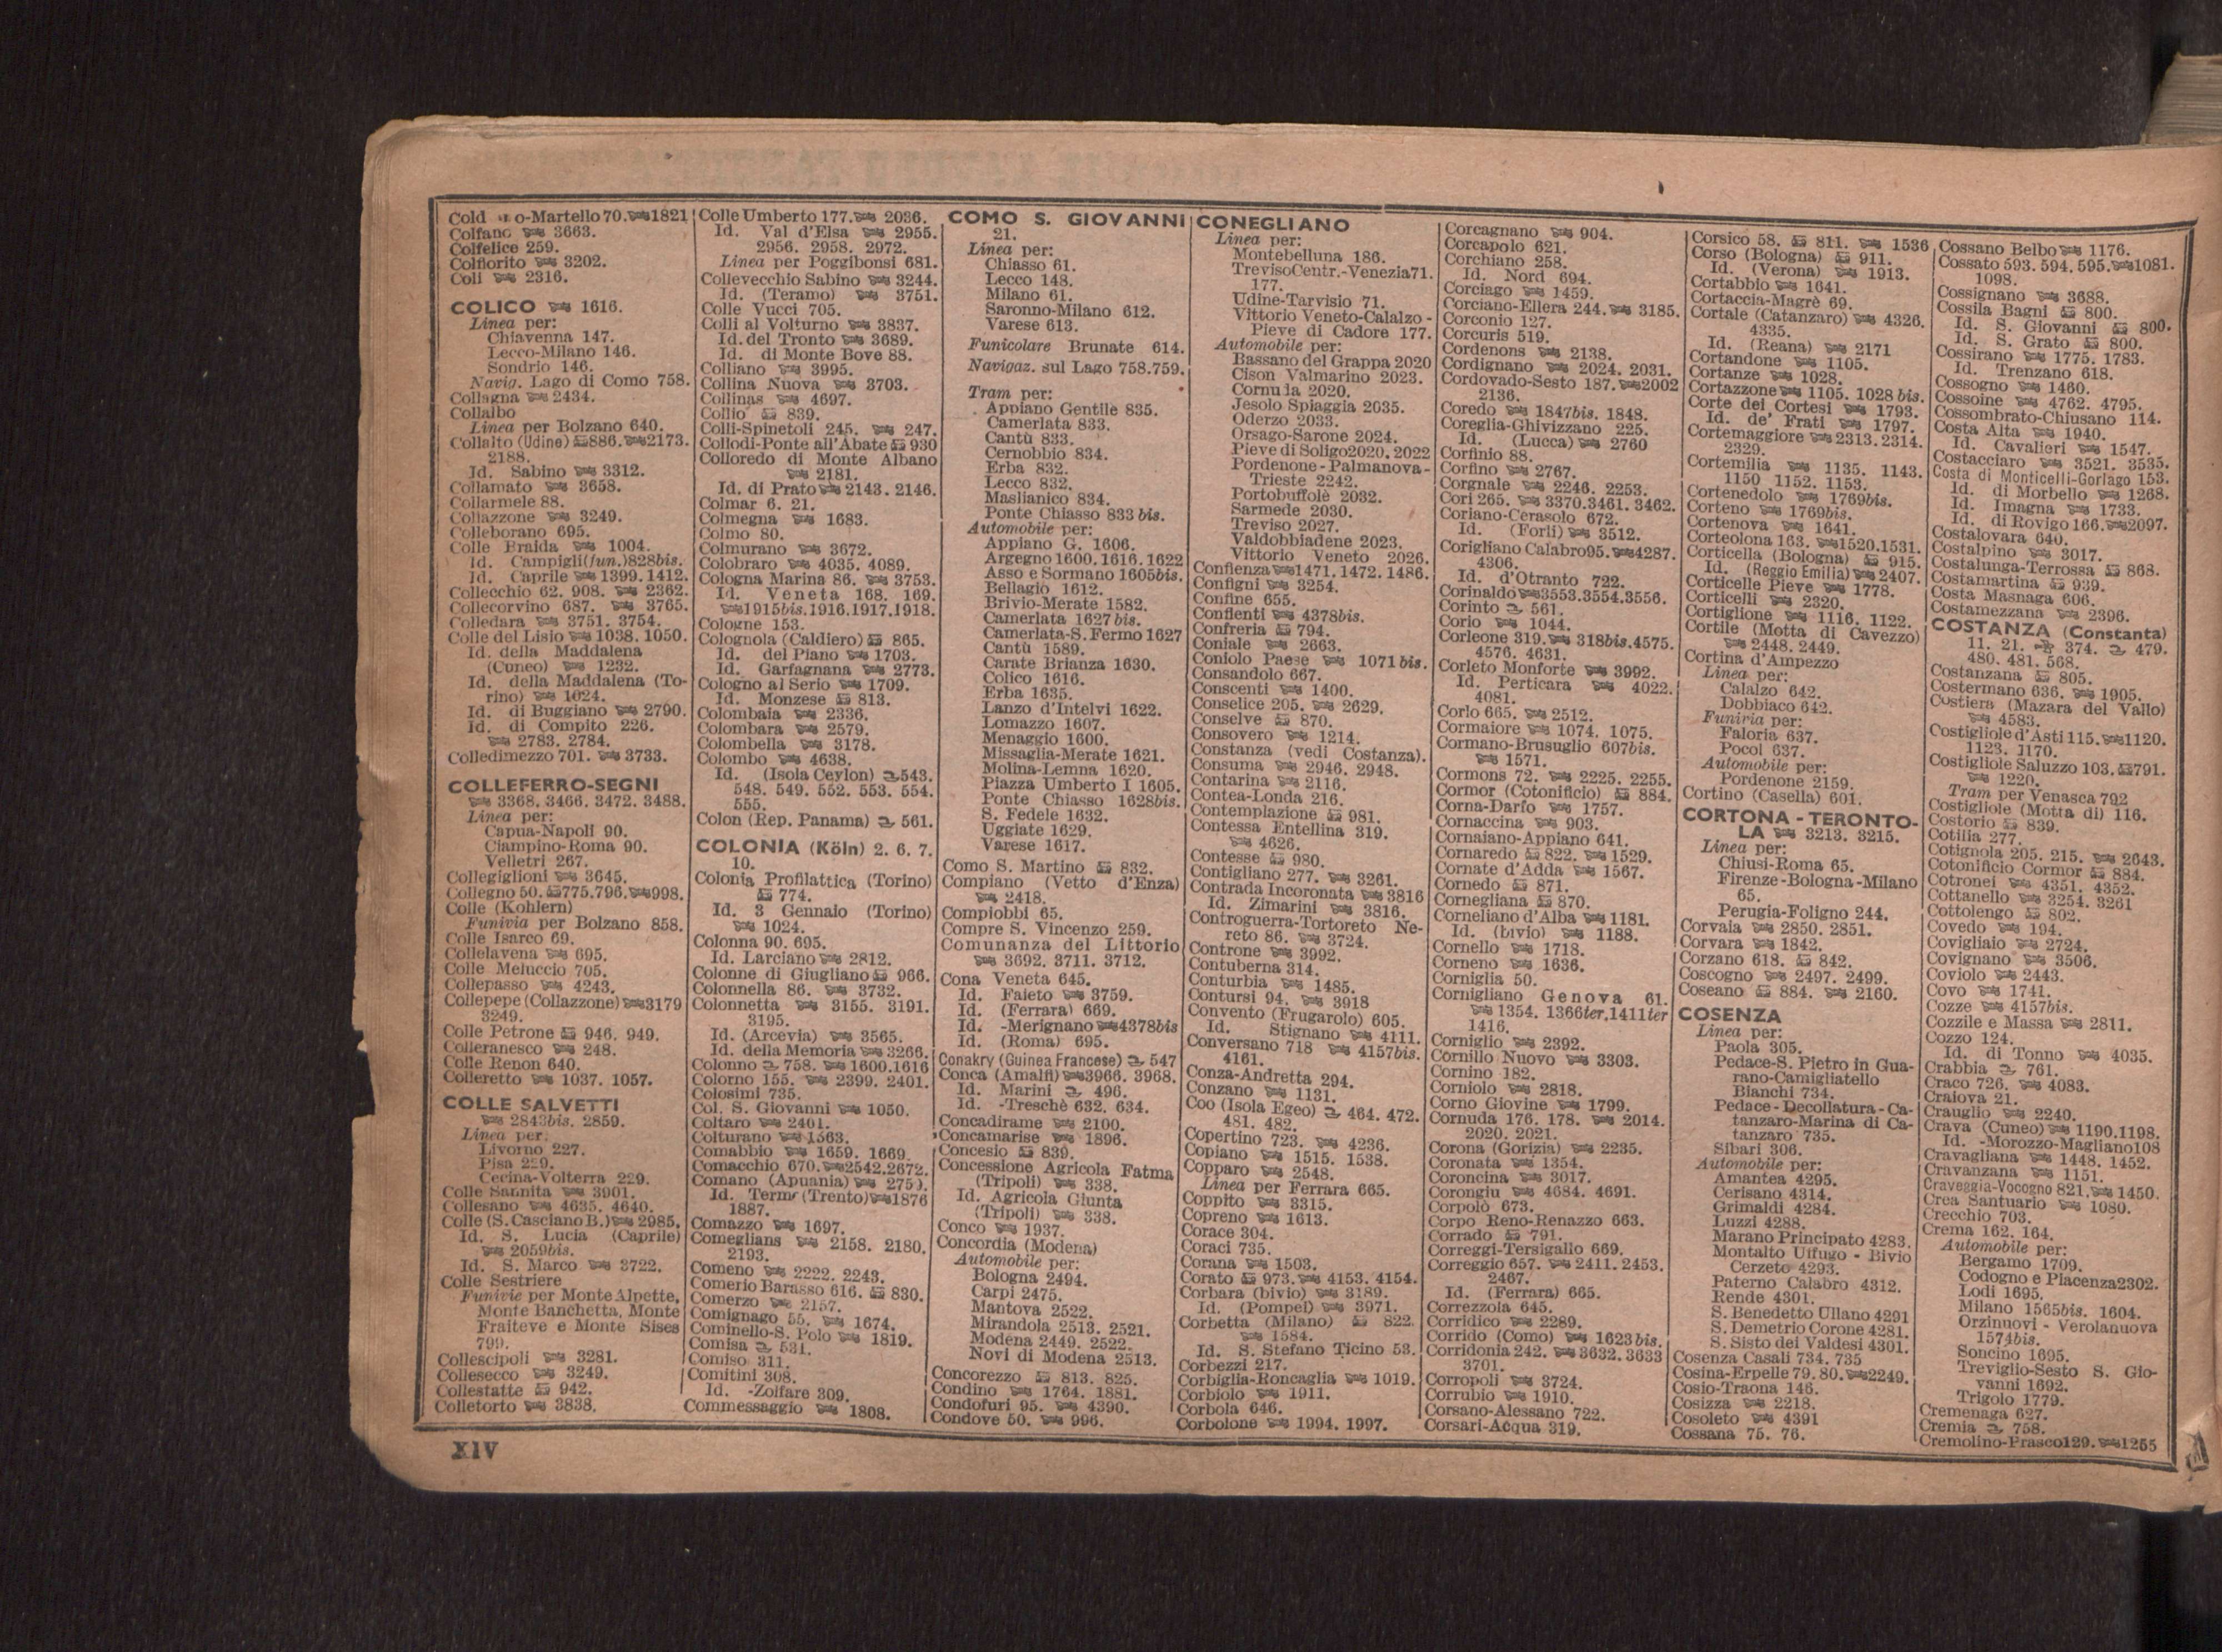 Cold o-Martello 70. 1821
Colfano 3663.
Colfelice 259.
Colfiorito 3202.
Coli 2316.
COLICO 1616.
Linea per:
Chiavenna 147.
Lecco-Milano 146.
Sondrio 146.
Navig. Lago di Como 758.
Collagna 2434.
Collalbo
Linea per Bolzano 640.
Collalto (Udine) 886. 2173.
2188.
Id. Sabino 3312.
Collamato 3658.
Collarmele 88.
Collazzone 3249.
Colleborano 695.
Colle Braida 1004.
Id. Campigli (fun.) 828bis.
Id. Caprile 1399. 1412.
Collecchio 62. 908. 2362.
Collecorvino 687. 3765.
Colledara 3751. 3754.
Colle del Lisio 1038. 1050.
Id. della Maddalena
(Cuneo) 1232.
Id. della Maddalena (To-
rino) 1024.
Id. di Buggiano 2790.
Id. di Compito 226.
2783. 2784.
Colledimezzo 701. 3733.
COLLEFERRO-SEGNI
3368. 3466. 3472. 3488.
Linea per:
Capua-Napoli 90.
Ciampino-Roma 90.
Velletri 267.
Collegiglioni 3645.
Collegno 50. 775. 796. 998.
Colle (Kohlern)
Funivia per Bolzano 858.
Colle Isarco 69.
Collelavena 695.
Colle Meluccio 705.
Collepasso 4243.
Collepepe (Collazzone) 3179
3249.
Colle Petrone 946. 949.
Colleranesco 248.
Colle Renon 640.
Colleretto 1037. 1057.
COLLE SALVETTI
2843bis. 2859.
Linea per:
Livorno 227.
Pisa 229.
Cecina-Volterra 229.
Colle Sannita 3901.
Collesano 4635. 4640.
Colle (S. Casciano B.) 2985.
Id. S. Lucia (Caprile)
2059bis.
Id. S. Marco 3722.
Colle Sestriere
Funivie per Monte Alpette,
Monte Banchetta, Monte
Fraiteve e Monte Sises
799.
Collescipoli 3281.
Collesecco 3249.
Collestatte 942.
Colletorto 3838.
Colle Umberto 177. 2036.
Id. Val d'Elsa 2955.
2956. 2958. 2972.
Linea per Poggibonsi 681.
Collevecchio Sabino 3244.
Id. (Teramo) 3751.
Colle Vucci 705.
Colli al Volturno 3837.
Id. del Tronto 3689.
Id. di Monte Bove 88.
Colliano 3995.
Collina Nuova 3703.
Collinas 4697.
Collio 839.
Colli-Spinetoli 245. 247.
Collodi-Ponte all'Abate 930
Colloredo di Monte Albano
2181.
Id. di Prato 2143. 2146.
Colmar 6. 21.
Colmegna 1683.
Colmo 80.
Colmurano 3672.
Colobraro 4035. 4089.
Cologna Marina 86. 3753.
Id. Veneta 168. 169.
1915bis. 1916. 1917. 1918.
Cologne 153.
Colognola (Caldiero) 865.
Id. del Piano 1703.
Id. Garfagnana 2773.
Cologno al Serio 1709.
Id. Monzese 813.
Colombaia 2336.
Colombara 2579.
Colombella 3178.
Colombo 4638.
Id. (Isola Ceylon) 543.
548. 549. 552. 553. 554.
555.
Colon (Rep. Panama) 561.
COLONIA (Köln) 2. 6. 7.
10.
Colonia Profilattica (Torino)
774.
Id. 3 Gennaio (Torino)
1024.
Colonna 90. 695.
Id. Larciano 2812.
Colonne di Giugliano 966.
Colonnella 86. 3732.
Colonnetta 3155. 3191.
3195.
Id. (Arcevia) 3565.
Id. della Memoria 3266.
Colonno 758. 1600. 1616
Colorno 155. 2399. 2401.
Colosimi 735.
Col. S. Giovanni 1050.
Coltaro 2401.
Colturano 1563.
Comabbio 1659. 1669.
Comacchio 670. 2542. 2672.
Comano (Apuania)
Id. Terme (Trento) 1876
1887.
Comazzo 1697.
Comeglians 2158. 2180.
2193.
Comeno 2222. 2243.
Comerio Barasso 616. 830.
Comerzo 2157.
Comignago 55. 1674.
Cominello-S. Polo 1819.
Comisa 531.
Comiso 311.
Comitini 308.
Id. -Zolfare 309.
Commessaggio 1808.
COMO S. GIOVANNI
21.
Linea per:
Chiasso 61.
Lecco 148.
Milano 61.
Saronno-Milano 612.
Varese 613.
Funicolare Brunate 614.
Navigaz. sul Lago 758. 759.
Tram per:
Appiano Gentile 835.
Camerlata 833.
Cantù 833.
Cernobbio 834.
Erba 832.
Lecco 832.
Maslianico 834.
Ponte Chiasso 833bis.
Automobile per:
Appiano G. 1606.
Argegno 1600. 1616. 1622
Asso e Sormano 1605bis.
Bellagio 1612.
Brivio-Merate 1582.
Camerlata 1627bis.
Camerlata-S. Fermo 1627
Cantù 1589.
Carate Brianza 1630.
Colico 1616.
Erba 1635.
Lanzo d'Intelvi 1622.
Lomazzo 1607.
Menaggio 1600.
Missaglia-Merate 1621.
Molina-Lemna 1620.
Piazza Umberto I 1605.
Ponte Chiasso 1628bis.
S. Fedele 1632.
Uggiate 1629.
Varese 1617.
Como S. Martino 832.
Compiano (Vetto d'Enza)
2418.
Compiobbi 65.
Compre S. Vincenzo 259.
Comunanza del Littorio
3692. 3711. 3712.
Cona Veneta 645.
Id. Faieto 3759.
Id. (Ferrara) 669.
Id. -Merignano 4378bis
Id. (Roma) 695.
Conakry (Guinea Francese) 547
Conca (Amalfi) 3966. 3968.
Id. Marini 496.
Id. -Treschè 632. 634.
Concadirame 2100.
Concamarise 1896.
Concesio 839.
Concessione Agricola Fatma
(Tripoli) 338.
Id. Agricola Giunta
(Tripoli) 338.
Conco 1937.
Concordia (Modena)
Automobile per:
Bologna 2494.
Carpi 2475.
Mantova 2522.
Mirandola 2513. 2521.
Modena 2449. 2522.
Novi di Modena 2513.
Concorezzo 813. 825.
Condino 1764. 1881.
Condofuri 95. 4390.
Condove 50. 996.
CONEGLIANO
Linea per:
Montebelluna 186.
Treviso Centr.-Venezia 71.
177.
Udine-Tarvisio 71.
Vittorio Veneto-Calalzo-
Pieve di Cadore 177.
Automobile per:
Bassano del Grappa 2020
Cison Valmarino 2023.
Cornuda 2020.
Jesolo Spiaggia 2035.
Oderzo 2033.
Orsago-Sarone 2024.
Pieve di Soligo 2020. 2022
Pordenone-Palmanova-
Trieste 2242.
Portobuffolè 2032.
Sarmede 2030.
Treviso 2027.
Valdobbiadene 2023.
Vittorio Veneto 2026.
Confienza 1471. 1472. 1486.
Configni 3254.
Confine 655.
Conflenti 4378bis.
Confreria 794.
Coniale 2663.
Coniolo Paese 1071bis.
Consandolo 667.
Conscenti 1400.
Conselice 205. 2629.
Conselve 870.
Consovero 1214.
Constanza (vedi Costanza).
Consuma 2946. 2948.
Contarina 2116.
Contea-Londa 216.
Contemplazione 981.
Contessa Entellina 319.
4626.
Contesse 980.
Contigliano 277. 3261.
Contrada Incoronata 3816
Id. Zimarini 3816.
Controguerra-Tortoreto Ne-
reto 86. 3724.
Controne 3992.
Contuberna 314.
Conturbia 1485.
Contursi 94. 3918
Convento (Frugarolo) 605.
Id. Stignano 4111.
Conversano 718 4157bis.
4161.
Conza-Andretta 294.
Conzano 1131.
Coo (Isola Egeo) 464. 472.
481. 482.
Copertino 723. 4236.
Copiano 1515. 1538.
Copparo 2548.
Linea per Ferrara 665.
Coppito 3315.
Copreno 1613.
Corace 304.
Coraci 735.
Corana 1503.
Corato 973. 4153. 4154.
Corbara (bivio) 3189.
Id. (Pompei) 3971.
Corbetta (Milano) 822.
1584.
Id. S. Stefano Ticino 53.
Corbezzi 217.
Corbiglia-Roncaglia 1019.
Corbiolo 1911.
Corbola 646.
Corbolone 1994. 1997.
Corcagnano 904.
Corcapolo 621.
Corchiano 258.
Id. Nord 694.
Corciago 1459.
Corciano-Ellera 244. 3185.
Corconio 127.
Corcuris 519.
Cordenons 2138.
Cordignano 2024. 2031.
Cordovado-Sesto 187. 2002
2136.
Coredo 1847bis. 1848.
Coreglia-Ghivizzano 225.
Id. (Lucca) 2760
Corfinio 88.
Corfino 2767.
Corgnale 2246. 2253.
Cori 265. 3370. 3461. 3462.
Coriano-Cerasolo 672.
Id. (Forlì) 3512.
Corigliano Calabro 95. 4287.
4306.
Id. d'Otranto 722.
Corinaldo 3553. 3554. 3556.
Corinto 561.
Corio 1044.
Corleone 319. 318bis. 4575.
4576. 4631.
Corleto Monforte 3992.
Id. Perticara 4022.
4081.
Corlo 665. 2512.
Cormaiore 1074. 1075.
Cormano-Brusuglio 607bis.
1571.
Cormons 72. 2225. 2255.
Cormor (Cotonificio) 884.
Corna-Darfo 1757.
Cornaccina 903.
Cornaiano-Appiano 641.
Cornaredo 822. 1529.
Cornate d'Adda 1567.
Cornedo 871.
Cornegliana 870.
Corneliano d'Alba 1181.
Id. (bivio) 1188.
Cornello 1718.
Corneno 1636.
Corniglia 50.
Cornigliano Genova 61.
1354. 1366ter. 1411ter
1416.
Corniglio 2392.
Cornillo Nuovo 3303.
Cornino 182.
Corniolo 2818.
Corno Giovine 1799.
Cornuda 176. 178. 2014.
2020. 2021.
Corona (Gorizia) 2235.
Coronata 1354.
Coroncina 3017.
Corongiu 4684. 4691.
Corpolò 673.
Corpo Reno-Renazzo 663.
Corrado 791.
Correggi-Tersigallo 669.
Correggio 657. 2411. 2453.
2467.
Id. (Ferrara) 665.
Correzzola 645.
Corridico 2289.
Corrido (Como) 1623bis.
Corridonia 242. 3632. 3633
3701.
Corropoli 3724.
Corrubio 1910.
Corsano-Alessano 722.
Corsari-Acqua 319.
Corsico 58. 811. 1536
Corso (Bologna) 911.
Id. (Verona) 1913.
Cortabbio 1641.
Cortaccia-Magrè 69.
Cortale (Catanzaro) 4326.
4335.
Id. (Reana) 2171
Cortandone 1105.
Cortanze 1028.
Cortazzone 1105. 1028bis.
Corte dei Cortesi 1793.
Id. de' Frati 1797.
Cortemaggiore 2313. 2314.
2329.
Cortemilia 1135. 1143.
1150 1152. 1153.
Cortenedolo 1769bis.
Corteno 1769bis.
Cortenova 1641.
Corteolona 163. 1520. 1531.
Corticella (Bologna) 915.
Id. (Reggio Emilia) 2407.
Corticelle Pieve 1778.
Corticelli 2320.
Cortiglione 1116. 1122.
Cortile (Motta di Cavezzo)
2448. 2449.
Cortina d'Ampezzo
Linea per:
Calalzo 642.
Dobbiaco 642.
Funivia per:
Faloria 637.
Pocol 637.
Automobile per:
Pordenone 2159.
Cortino (Casella) 601.
CORTONA - TERONTO-
LA 3213. 3215.
Linea per:
Chiusi-Roma 65.
Firenze-Bologna-Milano
65.
Perugia-Foligno 244.
Corvaia 2850. 2851.
Corvara 1842.
Corzano 618. 842.
Coscogno 2497. 2499.
Coseano 884. 2160.
COSENZA
Linea per:
Paola 305.
Pedace-S. Pietro in Gua-
rano-Camigliatello
Bianchi 734.
Pedace-Decollatura-Ca-
tanzaro-Marina di Ca-
tanzaro 735.
Sibari 306.
Automobile per:
Amantea 4295.
Cerisano 4314.
Grimaldi 4284.
Luzzi 4288.
Marano Principato 4283.
Montalto Uffugo - Bivio
Cerzeto 4293.
Paterno Calabro 4312.
Rende 4301.
S. Benedetto Ullano 4291
S. Demetrio Corone 4281.
S. Sisto dei Valdesi 4301.
Cosenza Casali 734. 735
Cosina-Erpelle 79. 80. 2249.
Cosio-Traona 146.
Cosizza 2218.
Cosoleto 4391
Cossana 75. 76.
Cossano Belbo 1176.
Cossato 593. 594. 595. 1081.
1098.
Cossignano 3688.
Cossila Bagni 800.
Id. S. Giovanni 800.
Id. S. Grato 800.
Cossirano 1775. 1783.
Id. Trenzano 618.
Cossogno 1460.
Cossoine 4762. 4795.
Cossombrato-Chiusano 114.
Costa Alta 1940.
Id. Cavalieri 1547.
Costacciaro 3521. 3535.
Costa di Monticelli-Gorlago 153.
Id. di Morbello 1268.
Id. Imagna 1733.
Id. di Rovigo 166. 2097.
Costalovara 640.
Costalpino 3017.
Costalunga-Terrossa 868.
Costamartina 939.
Costa Masnaga 606.
Costamezzana 2396.
COSTANZA (Constanta)
11. 21. 374. 479.
480. 481. 568.
Costanzana 805.
Costermano 636. 1905.
Costiera (Mazara del Vallo)
4583.
Costigliole d'Asti 115. 1120.
1123. 1170.
Costigliole Saluzzo 103. 791.
1220.
Tram per Venasca 792
Costigliole (Motta di) 116.
Costorio 839.
Cotilia 277.
Cotignola 205. 215. 2643.
Cotonificio Cormor 884.
Cotronei 4351. 4352.
Cottanello 3254. 3261
Cottolengo 802.
Covedo 194.
Covigliaio 2724.
Covignano 3506.
Coviolo 2443.
Covo 1741.
Cozze 4157bis.
Cozzile e Massa 2811.
Cozzo 124.
Id. di Tonno 4035.
Crabbia 761.
Craco 726. 4083.
Craiova 21.
Crauglio 2240.
Crava (Cuneo) 1190. 1198.
Id. -Morozzo-Magliano 108
Cravagliana 1448. 1452.
Cravanzana 1151.
Craveggia-Vocogno 821. 1450.
Crea Santuario 1080.
Crecchio 703.
Crema 162. 164.
Automobile per:
Bergamo 1709.
Codogno e Piacenza 2302.
Lodi 1695.
Milano 1565bis. 1604.
Orzinuovi - Verolanuova
1574bis.
Soncino 1695.
Treviglio-Sesto S. Gio-
vanni 1692.
Trigolo 1779.
Cremenaga 627.
Cremia 758.
Cremolino-Prasco 129. 1255
XIV